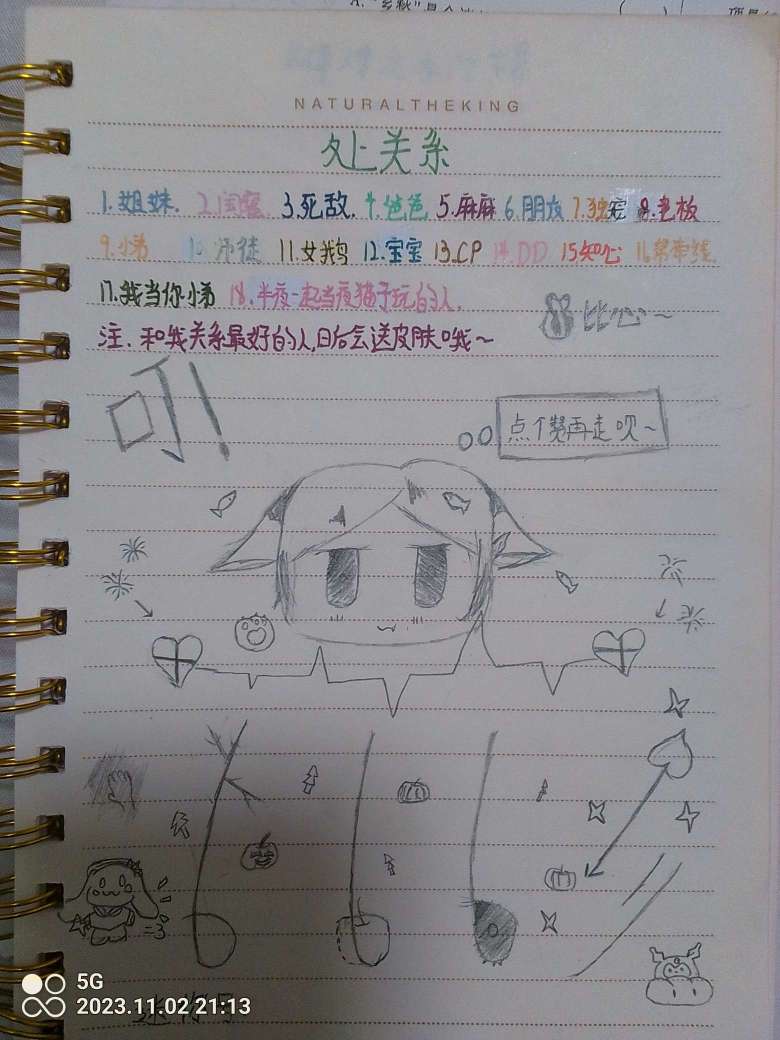 NATURALTHEKING
处关系
1.姐妹. 2.闺蜜. 3.死敌. 4.爸爸. 5.麻麻 6.朋友 7.独宠 8.老板
9.小弟 10.师徒 11.女鹅 12.宝宝 13.CP 14.DD 15知心 16.帮牵线.
17.我当你小弟 18.半夜一起当夜猫子玩的人.
比心~
注.和我关系最好的人,日后会送皮肤哦~
叮!
点个赞再走呗~
=3
5G
2023.11.02 21:13